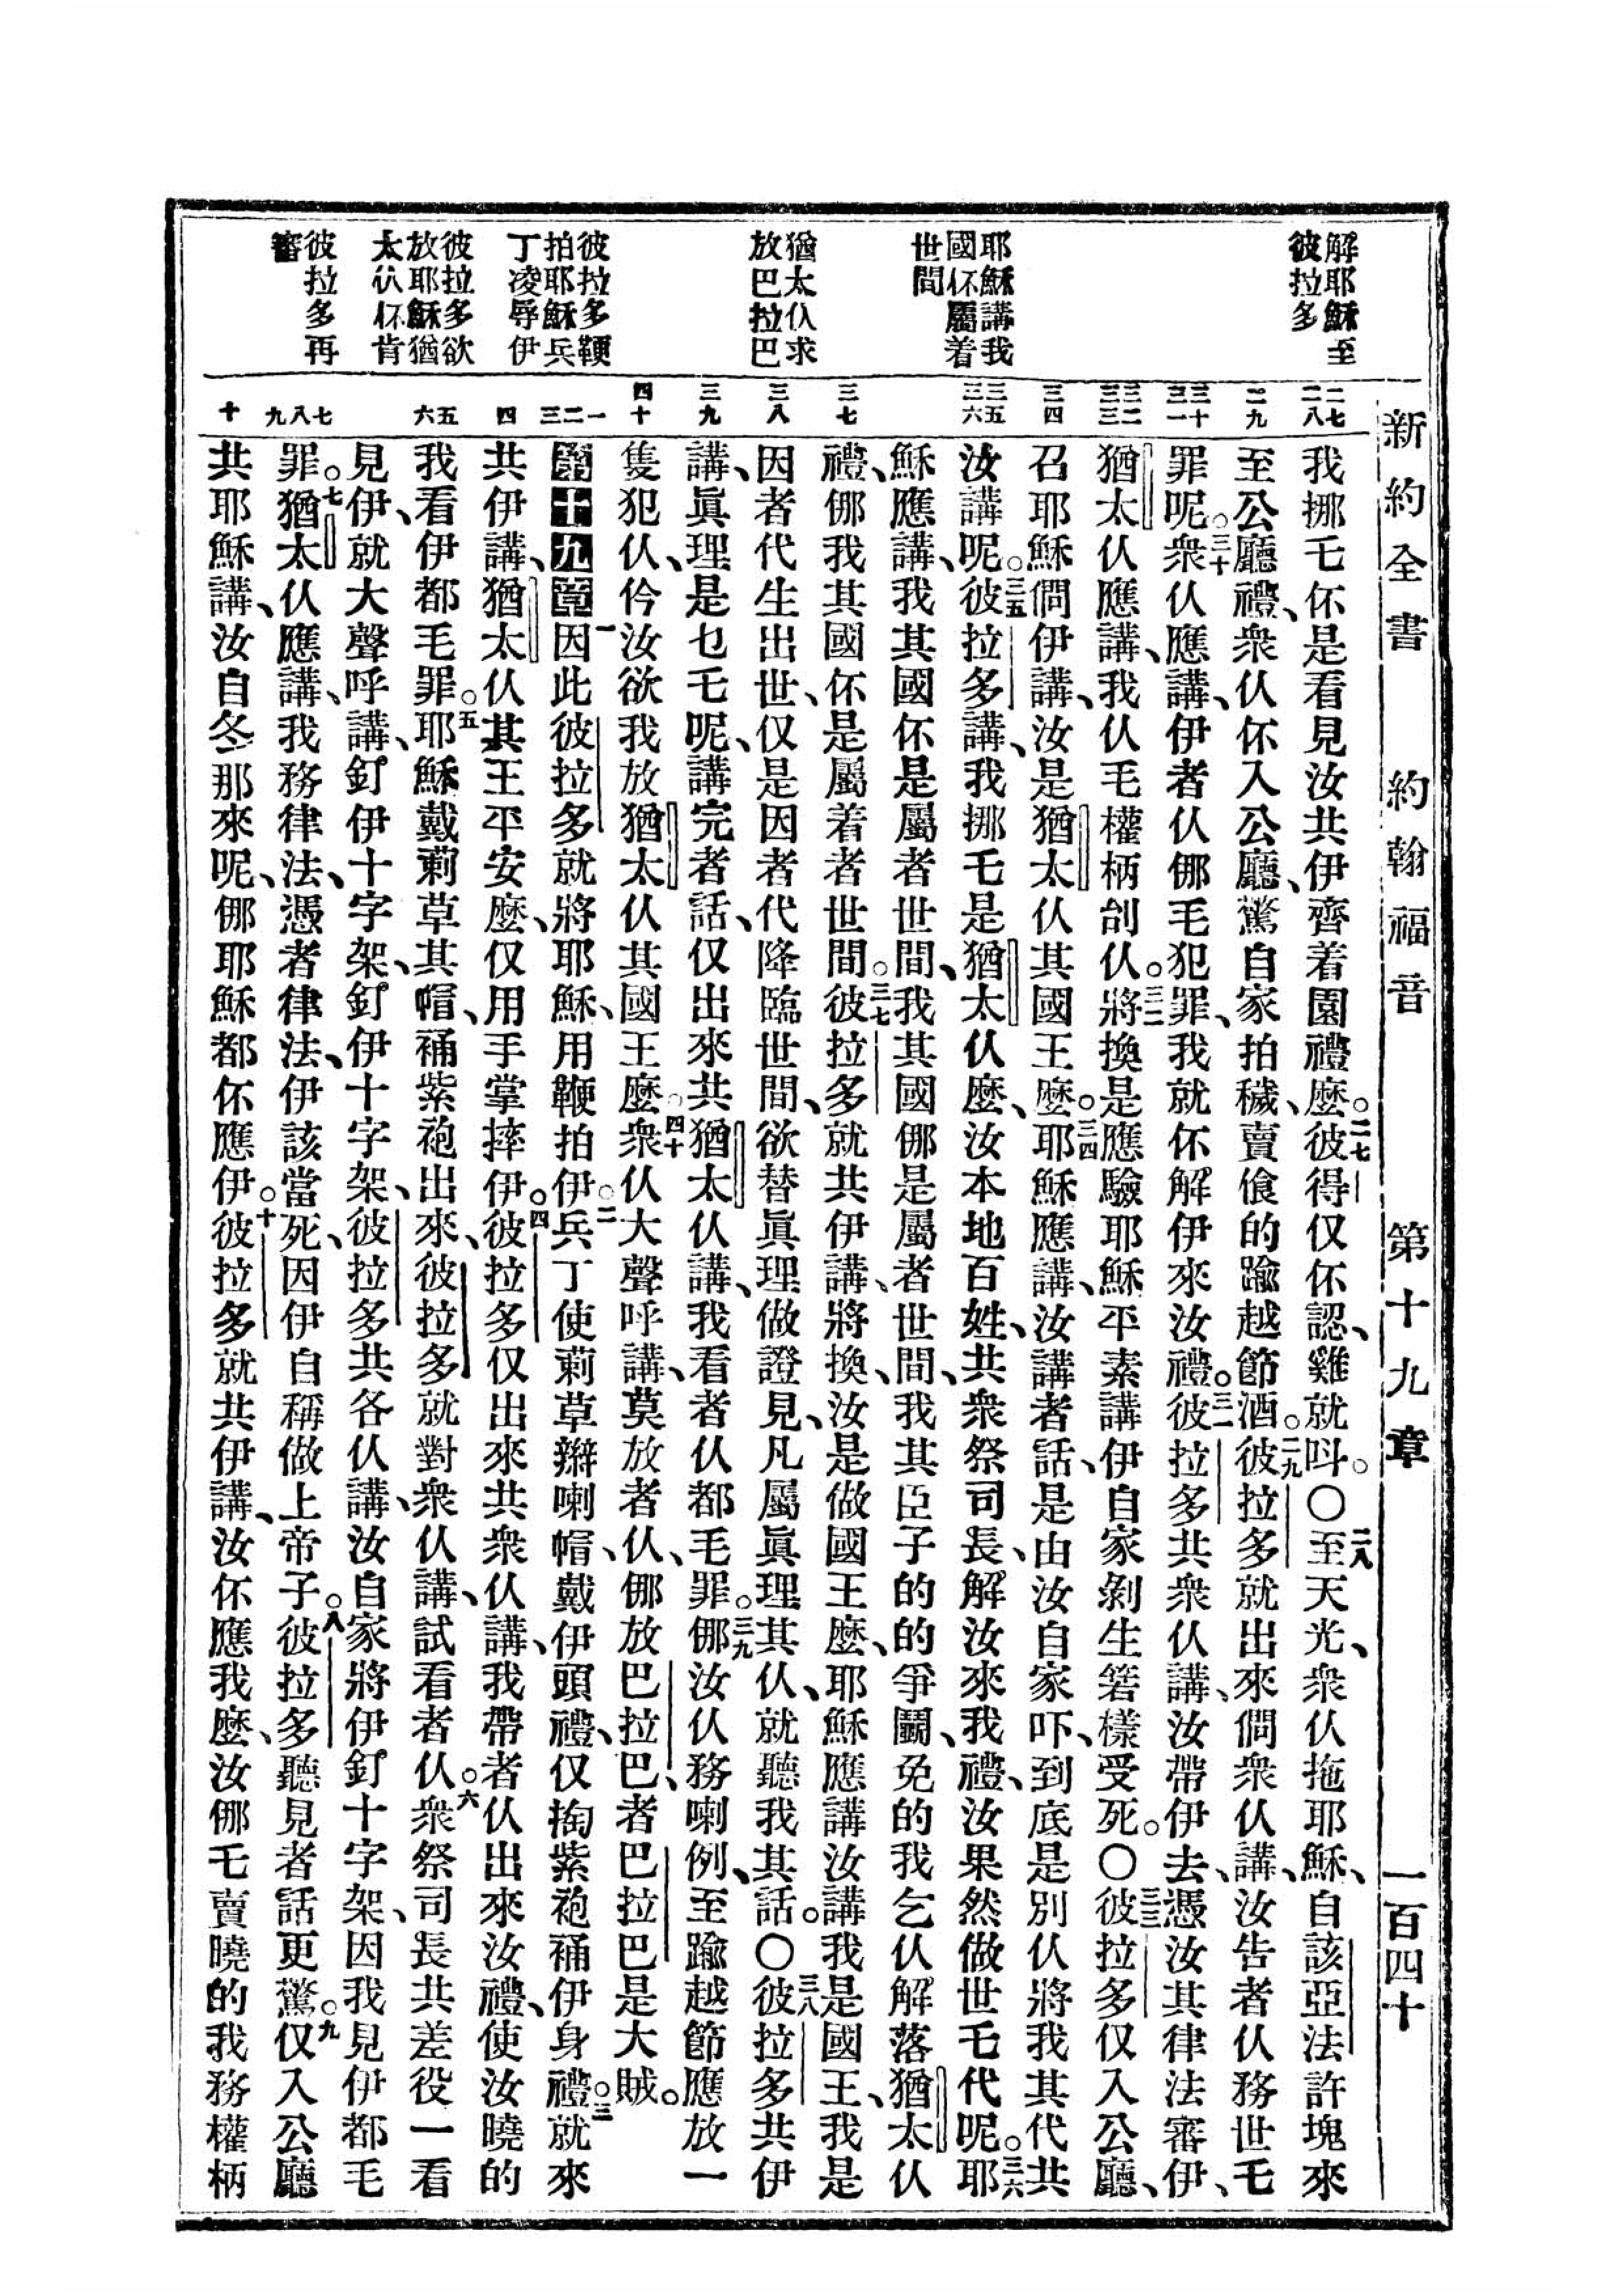 新約全書 約翰福音 第十九章 一百四十
解耶穌至
彼拉多
耶穌講我
國伓屬着
世間
猶太仈求
放巴拉巴
彼拉多鞭
拍耶穌兵
丁凌辱伊
彼拉多欲
放耶穌猶
太仈伓肯
彼拉多再
審
二七
二八
二九
三十
三一
三二
三三
三四
三五
三六
三七
三八
三九
四十
一
二
三
四
五
六
七
八
九
十
我挪乇伓是看見汝共伊齊着園禮麽。二七彼得仅伓認、雞就呌。〇二八至天光、衆仈拖耶穌、自該亞法許塊來
至公廳禮、衆仈伓入公廳、驚自家拍穢、賣飡的踰越節酒。二九彼拉多就出來問衆仈講、汝告者仈務世乇
罪呢。三十衆仈應講、伊者仈㑚毛犯罪、我就伓解伊來汝禮。三一彼拉多共衆仈講、汝帶伊去、憑汝其律法審伊、
猶太仈應講、我仈毛權柄刣仈。三二將換是應驗耶穌平素講伊自家剝生箬樣受死。〇三三彼拉多仅入公廳、
召耶穌問伊講、汝是猶太仈其國王麽。三四耶穌應講、汝講者話、是由汝自家吓、到底是別仈將我其代共
汝講呢。三五彼拉多講、我挪乇是猶太仈麽、汝本地百姓、共衆祭司長、解汝來我禮、汝果然做世乇代呢。三六耶
穌應講、我其國伓是屬者世間、我其國㑚是屬者世間、我其臣子的的爭鬭、免的我乞仈解落猶太仈
禮、㑚我其國伓是屬着者世間。三七彼拉多就共伊講、將換、汝是做國王麽、耶穌應講汝講我是國王、我是
因者代生出世、仅是因者代降臨世間、欲替眞理做證見、凡屬眞理其仈、就聽我其話。〇三八彼拉多共伊
講、眞理是乜乇呢、講完者話、仅出來共猶太仈講、我看者仈都毛罪。三九㑚汝仈務喇例、至踰越節應放一
隻犯仈、仱汝欲我放猶太仈其國王麽。四十衆仈大聲呼講、莫放者仈、㑚放巴拉巴、者巴拉巴是大賊。
第十九章一因此彼拉多就將耶穌、用鞭拍伊。二兵丁使莿草辮喇帽、戴伊頭禮、仅掏紫袍𧙕伊身禮。三就來
共伊講、猶太仈其王平安麽、仅用手掌摔伊。四彼拉多仅出來共衆仈講、我帶者仈出來汝禮、使汝曉的
我看伊都毛罪。五耶穌戴莿草其帽、𧙕紫袍出來、彼拉多就對衆仈講、試看者仈。六衆祭司長共差役一看
見伊、就大聲呼講、釘伊十字架、釘伊十字架、彼拉多共各仈講、汝自家將伊釘十字架、因我見伊都毛
罪。七猶太仈應講、我務律法、憑者律法、伊該當死、因伊自稱做上帝子。八彼拉多聽見者話更驚。九仅入公廳
共耶穌講、汝自冬那來呢、㑚耶穌都伓應伊。十彼拉多就共伊講、汝伓應我麽、汝㑚乇賣曉的我務權柄